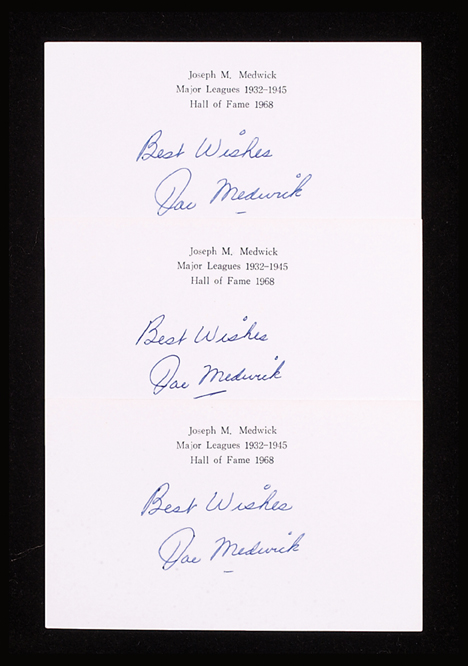 Joseph M. Medwick
Major Leagues 1932-1945
Hall of Fame 1968
Best Wishes
Joe Medwick
Joseph M. Medwick
Major Leagues 1932-1945
Hall of Fame 1968
Best Wishes
Joe Medwick
Joseph M. Medwick
Major Leagues 1932-1945
Hall of Fame 1968
Best Wishes
Joe Medwick